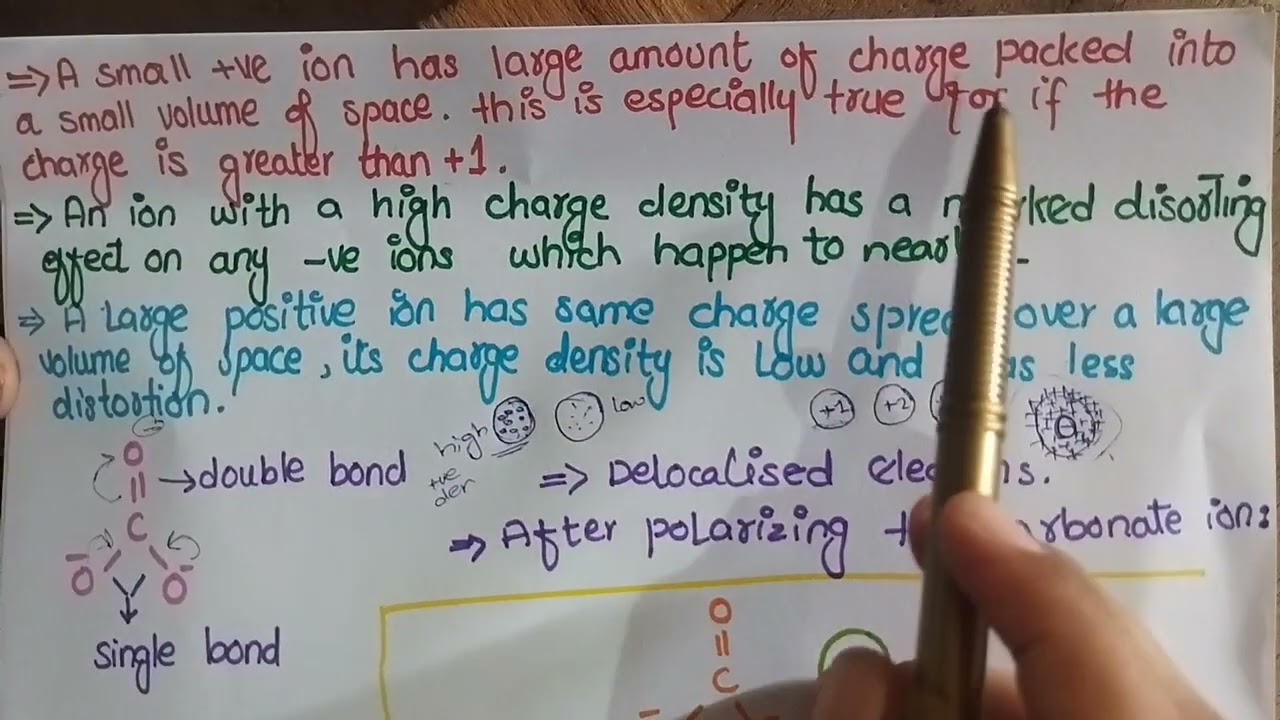 ⇒ A small +ve ion has large amount of charge packed into
a small volume of space. this is especially true for if the
charge is greater than +1.
⇒ An ion with a high charge density has a disorting
effect on any -ve ions which happen to
⇒ A Large positive ion has same charge over a large
volume of space, its charge density is Low and less
distortion.
high low +1 +2
+ve
den
O
→ double bond ⇒ Delocalised
C ⇒ After polarizing
O⁻ O⁻
single bond
O
C